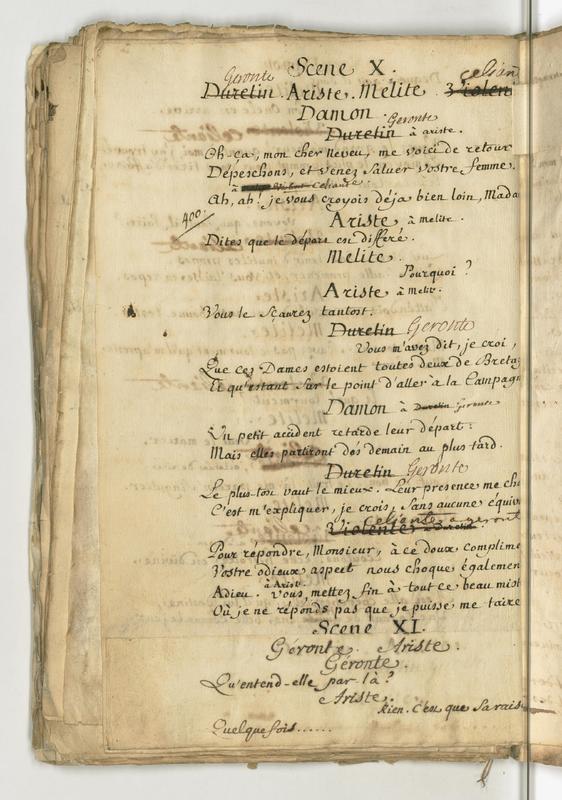 Scene X.
Geronte Celian
Duretin. Ariste. Melite.
Damon.
Geronte
Duretin à ariste.
Oh ça, mon cher Neveu, me voici de retour
Depeschons, et venez saluer vostre femme.
à Celiante.
Ah, ah! je vous croyois déja bien loin, Mada
400.
Ariste à Melite.
Dites que le départ est differé.
Melite.
Pourquoi?
Ariste à Melit.
Vous le sçaurez tantost.
Duretin Geronte
Vous m'avez dit, je croi,
Que ces Dames estoient toutes deux de Bretag
Et qu'estant sur le point d'aller à la Campagn
Damon à Duretin Geronte
Un petit accident retarde leur départ:
Mais elles partiront dés demain au plus tard.
Duretin Geronte
Le plus-tost vaut le mieux. Leur presence me cho
C'est m'expliquer, je crois, sans aucune équiv
Celiante a Geront
Violente à Duretin
Pour répondre, Monsieur, à ce doux complime
Vostre odieux aspect nous choque égalemen
à Arist.
Adieu. Vous, mettez fin à tout ce beau mist
Où je ne réponds pas que je puisse me taire
Scene XI.
Géronte. Ariste.
Géronte.
Qu'entend-elle par-là?
Ariste.
Rien. C'est que sa rais
Quelquefois......